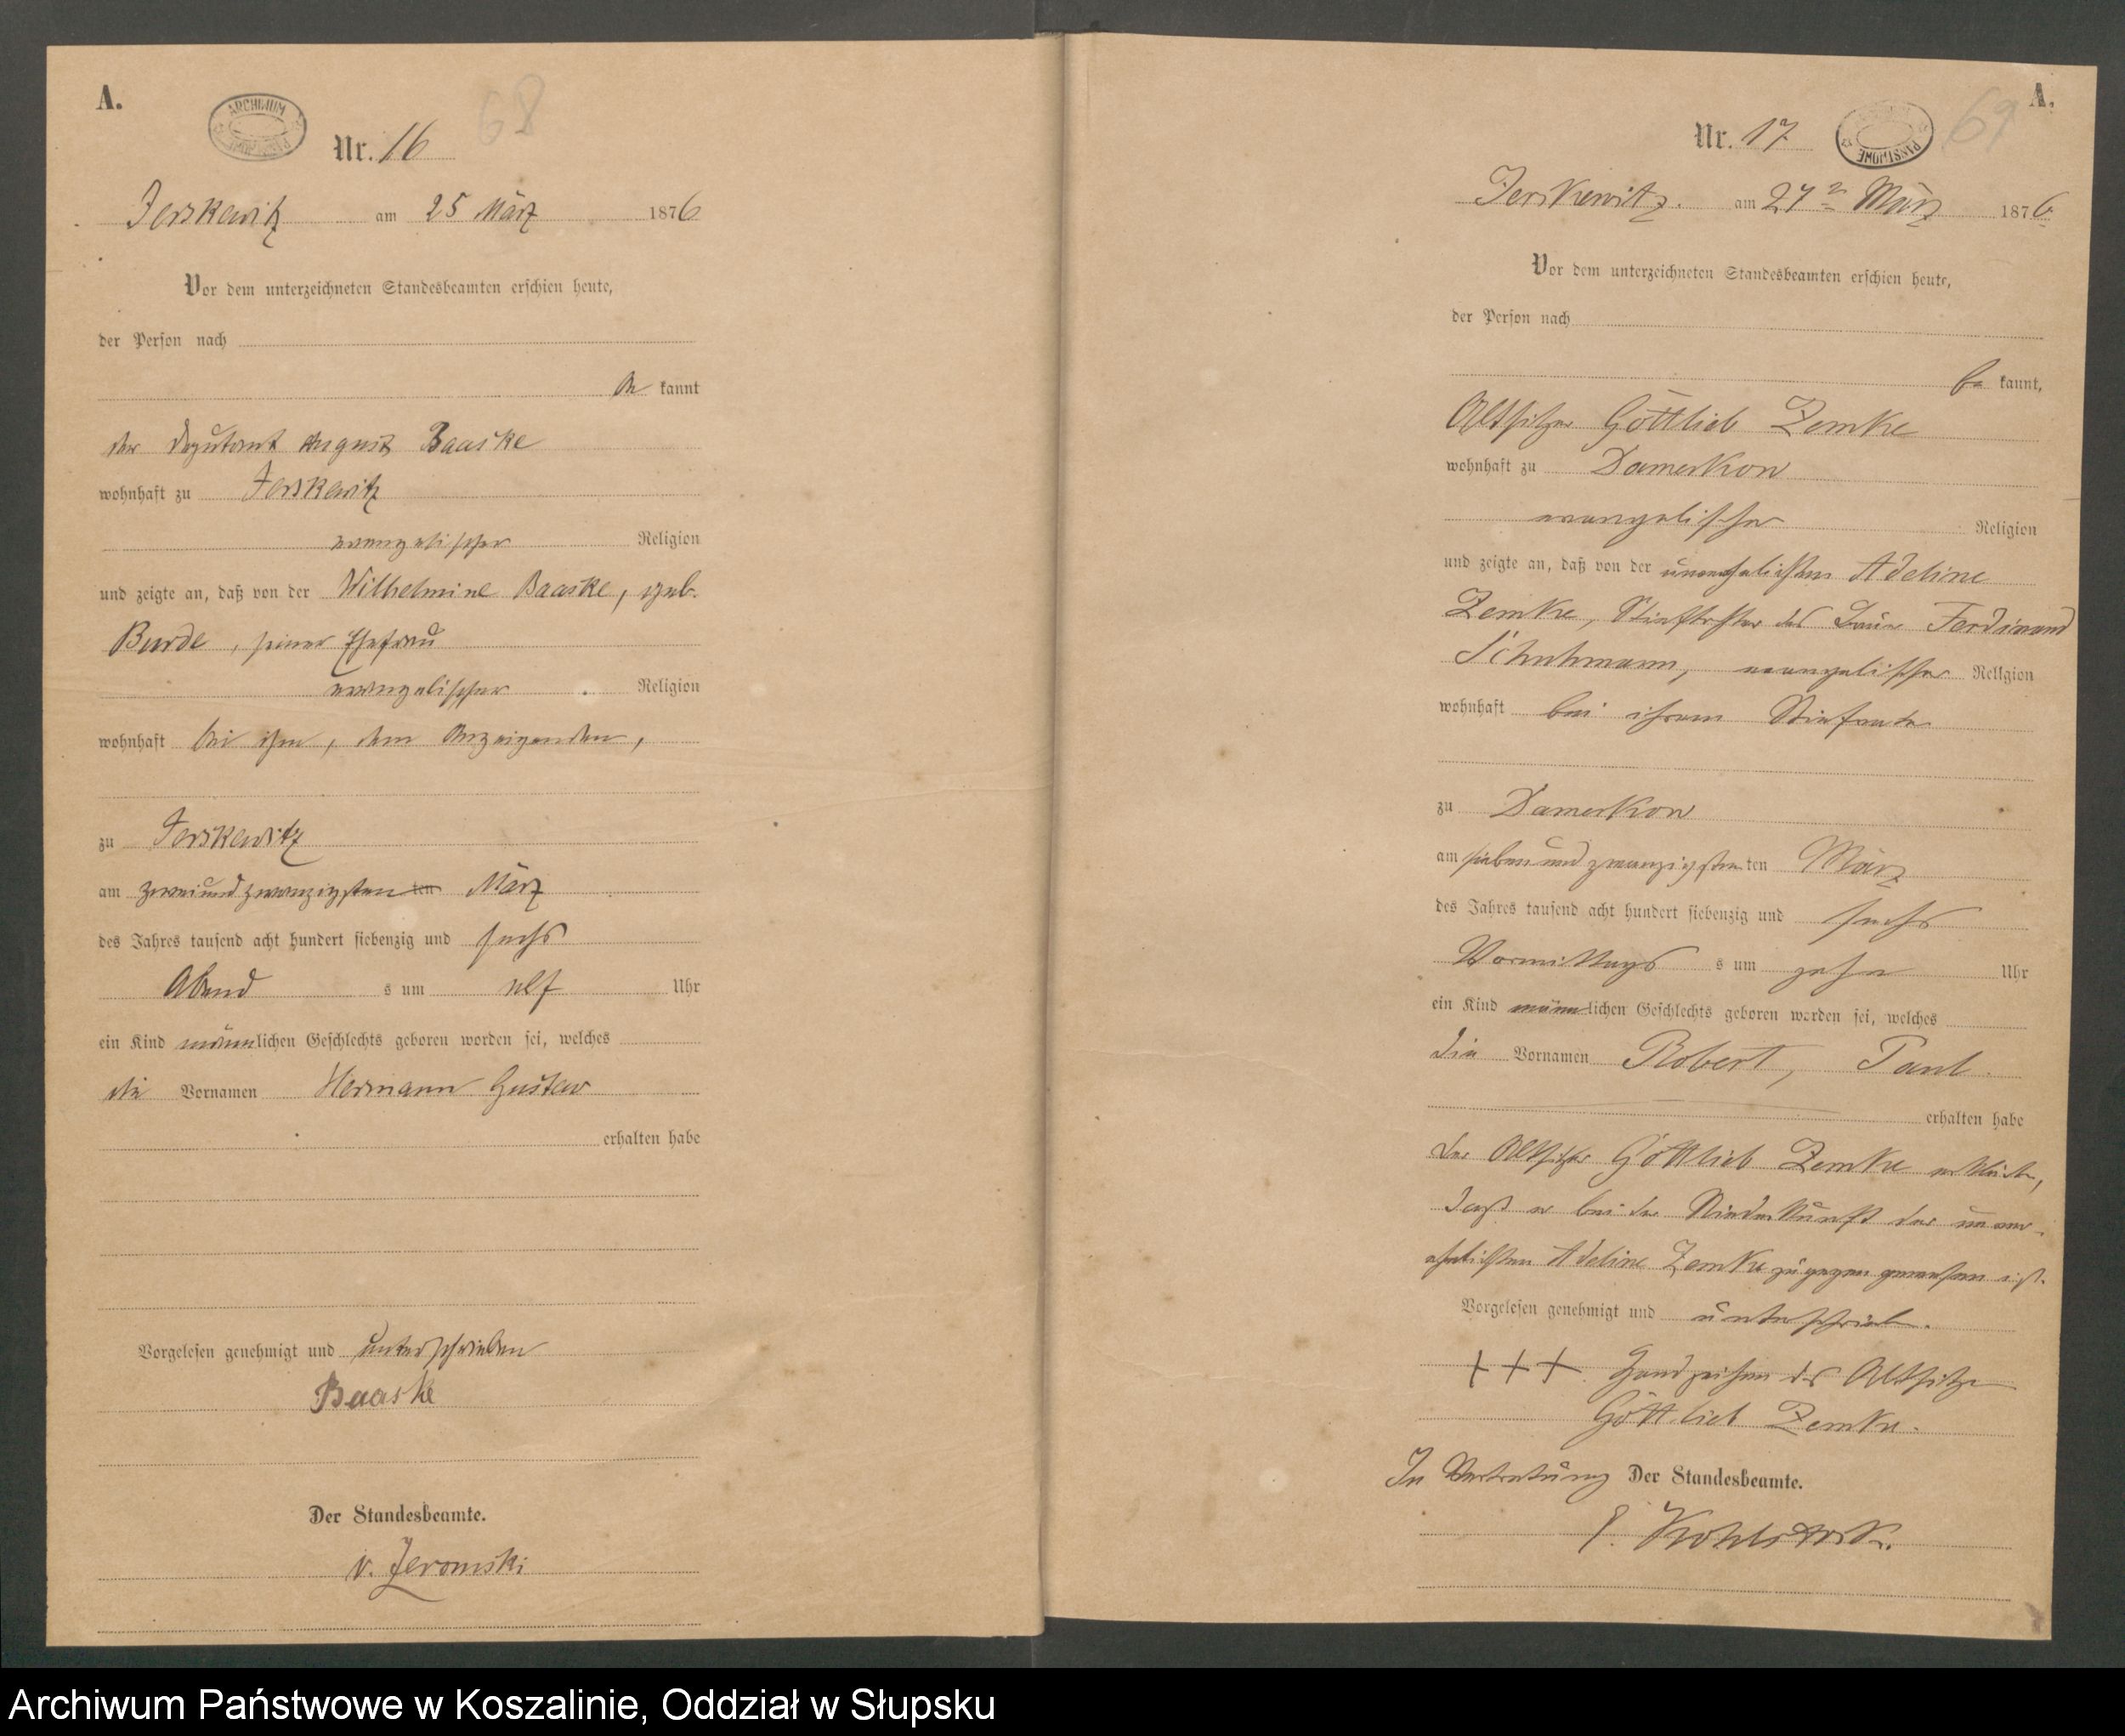 A.
ARCHIWUM PAŃSTWOWE
68
Nr. 16
Jerskewitz am 25 März 1876
Vor dem unterzeichneten Standesbeamten erschien heute,
der Person nach
kannt
der Deputant August Baaske
wohnhaft zu Jerskewitz
evangelischer Religion
und zeigte an, daß von der Wilhelmine Baaske, geb.
Burde, seiner Ehefrau
evangelischer Religion
wohnhaft bei ihm, dem Anzeigenden,
zu Jerskewitz
am zweiundzwanzigsten ten März
des Jahres tausend acht hundert siebenzig und sechs
Abend s um elf Uhr
ein Kind männlichen Geschlechts geboren worden sei, welches
die Vornamen Hermann Gustav
erhalten habe
Vorgelesen genehmigt und unterschrieben
Baaske
Der Standesbeamte.
v. Zeromski
A.
69
PAŃSTWOWE
Nr. 17
Jerskewitz. am 27 März 1876
Vor dem unterzeichneten Standesbeamten erschien heute,
der Person nach
be kannt,
Altsitzer Gottlieb Zemke
wohnhaft zu Damerkow
evangelischer Religion
und zeigte an, daß von der unverehelichten Adeline
Zemke, Stieftochter des Bauer Ferdinand
Schuhmann, evangelischer Religion
wohnhaft bei ihrem Stiefvater
zu Damerkow
am siebenundzwanzigsten ten März
des Jahres tausend acht hundert siebenzig und sechs
Vormittags s um zehn Uhr
ein Kind männlichen Geschlechts geboren worden sei, welches
die Vornamen Robert, Paul.
erhalten habe
Der Altsitzer Gottlieb Zemke erklärte,
daß er bei der Niederkunft der unver-
ehelichten Adeline Zemke zugegen gewesen ist.
Vorgelesen genehmigt und unterschrieb.
+++ Handzeichen des Altsitzer
Gottlieb Zemke.
In Vertretung Der Standesbeamte.
Archiwum Państwowe w Koszalinie, Oddział w Słupsku